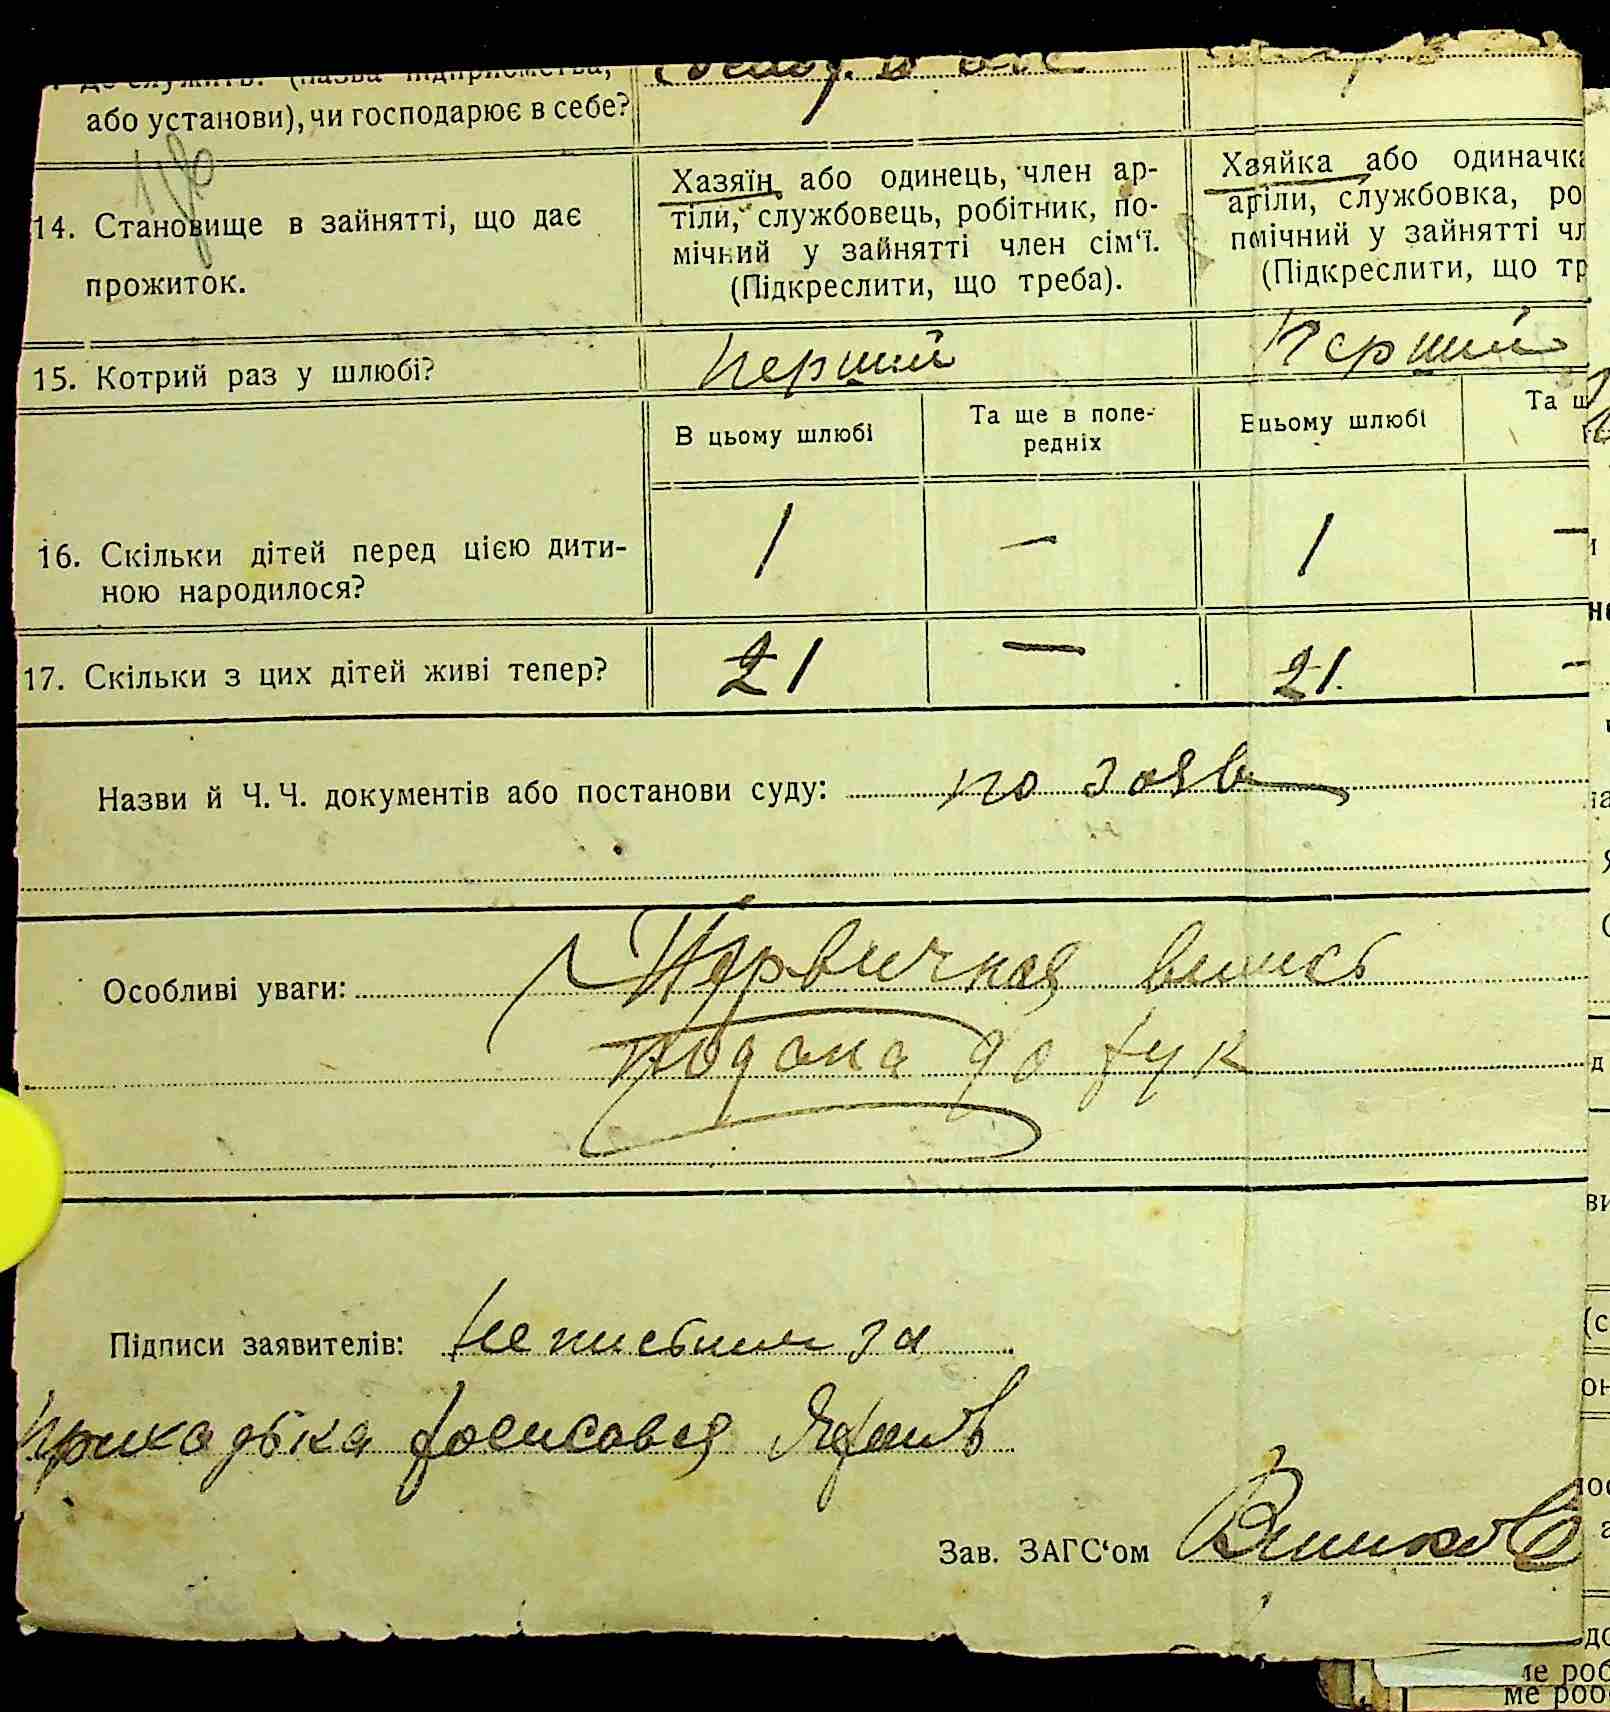 де служить: (назва підприємства,
або установи), чи господарює в себе?
14. Становище в зайнятті, що дає
прожиток.
Хазяїн або одинець, член ар-
тіли, службовець, робітник, по-
мічний у зайнятті член сім‘ї.
(Підкреслити, що треба).
Хаяйка або одиначка
аріли, службовка, ро
пмічний у зайнятті чл
(Підкреслити, що тр
15. Котрий раз у шлюбі? перший перший
В цьому шлюбі
Та ще в попе-
редніх
Вцьому шлюбі
Та щ
16. Скільки дітей перед цією дити-
ною народилося?
1 — 1 —
17. Скільки з цих дітей живі тепер? 21 — 21 —
Назви й Ч. Ч. документів або постанови суду: по заяв
Особливі уваги: Первичная
подана до
Підписи заявителів: Неписьмен за
Зав. ЗАГС‘ом